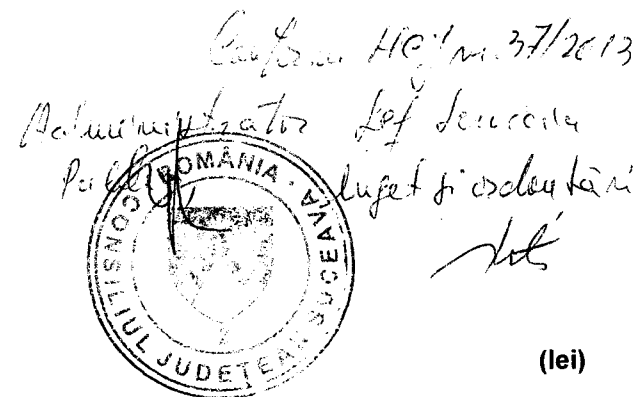 Conform HCJ nr. 37/2013
Administrator Șef Serviciu
Public Buget și ordonțări
ROMÂNIA - CONSILIUL JUDEȚEAN SUCEAVA
(lei)